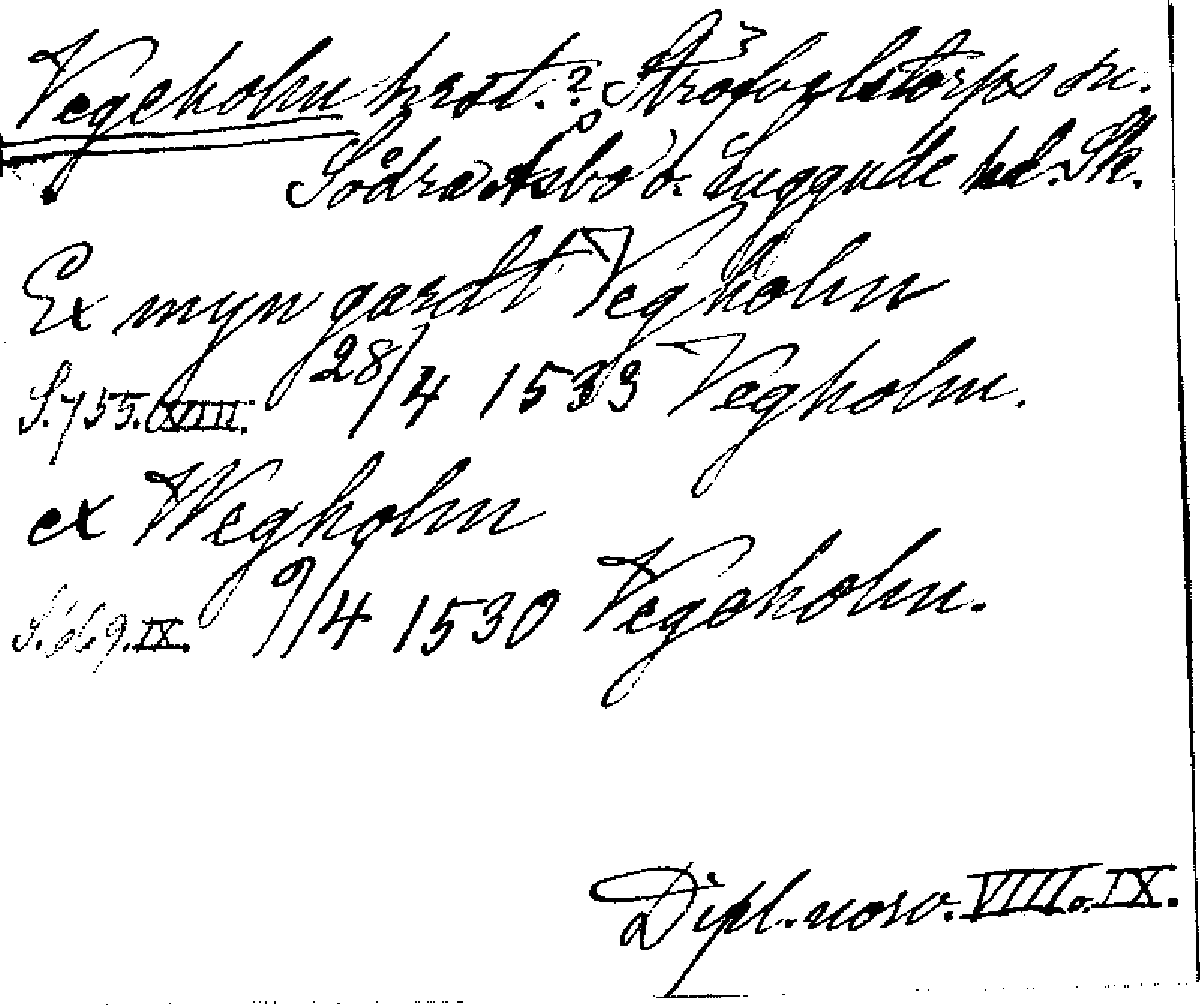 Vegeholm hrst.? Ströfvelstorps sn.
Södra Åsbo o. Luggude hd. Sk.
Ex myn gardt Vegholm
S. 755. VIII. 28/4 1533 Vegholm.
ex Wegholm
S. 669. IX. 9/4 1530 Vegeholm.
Dipl. norv. VIII. IX.